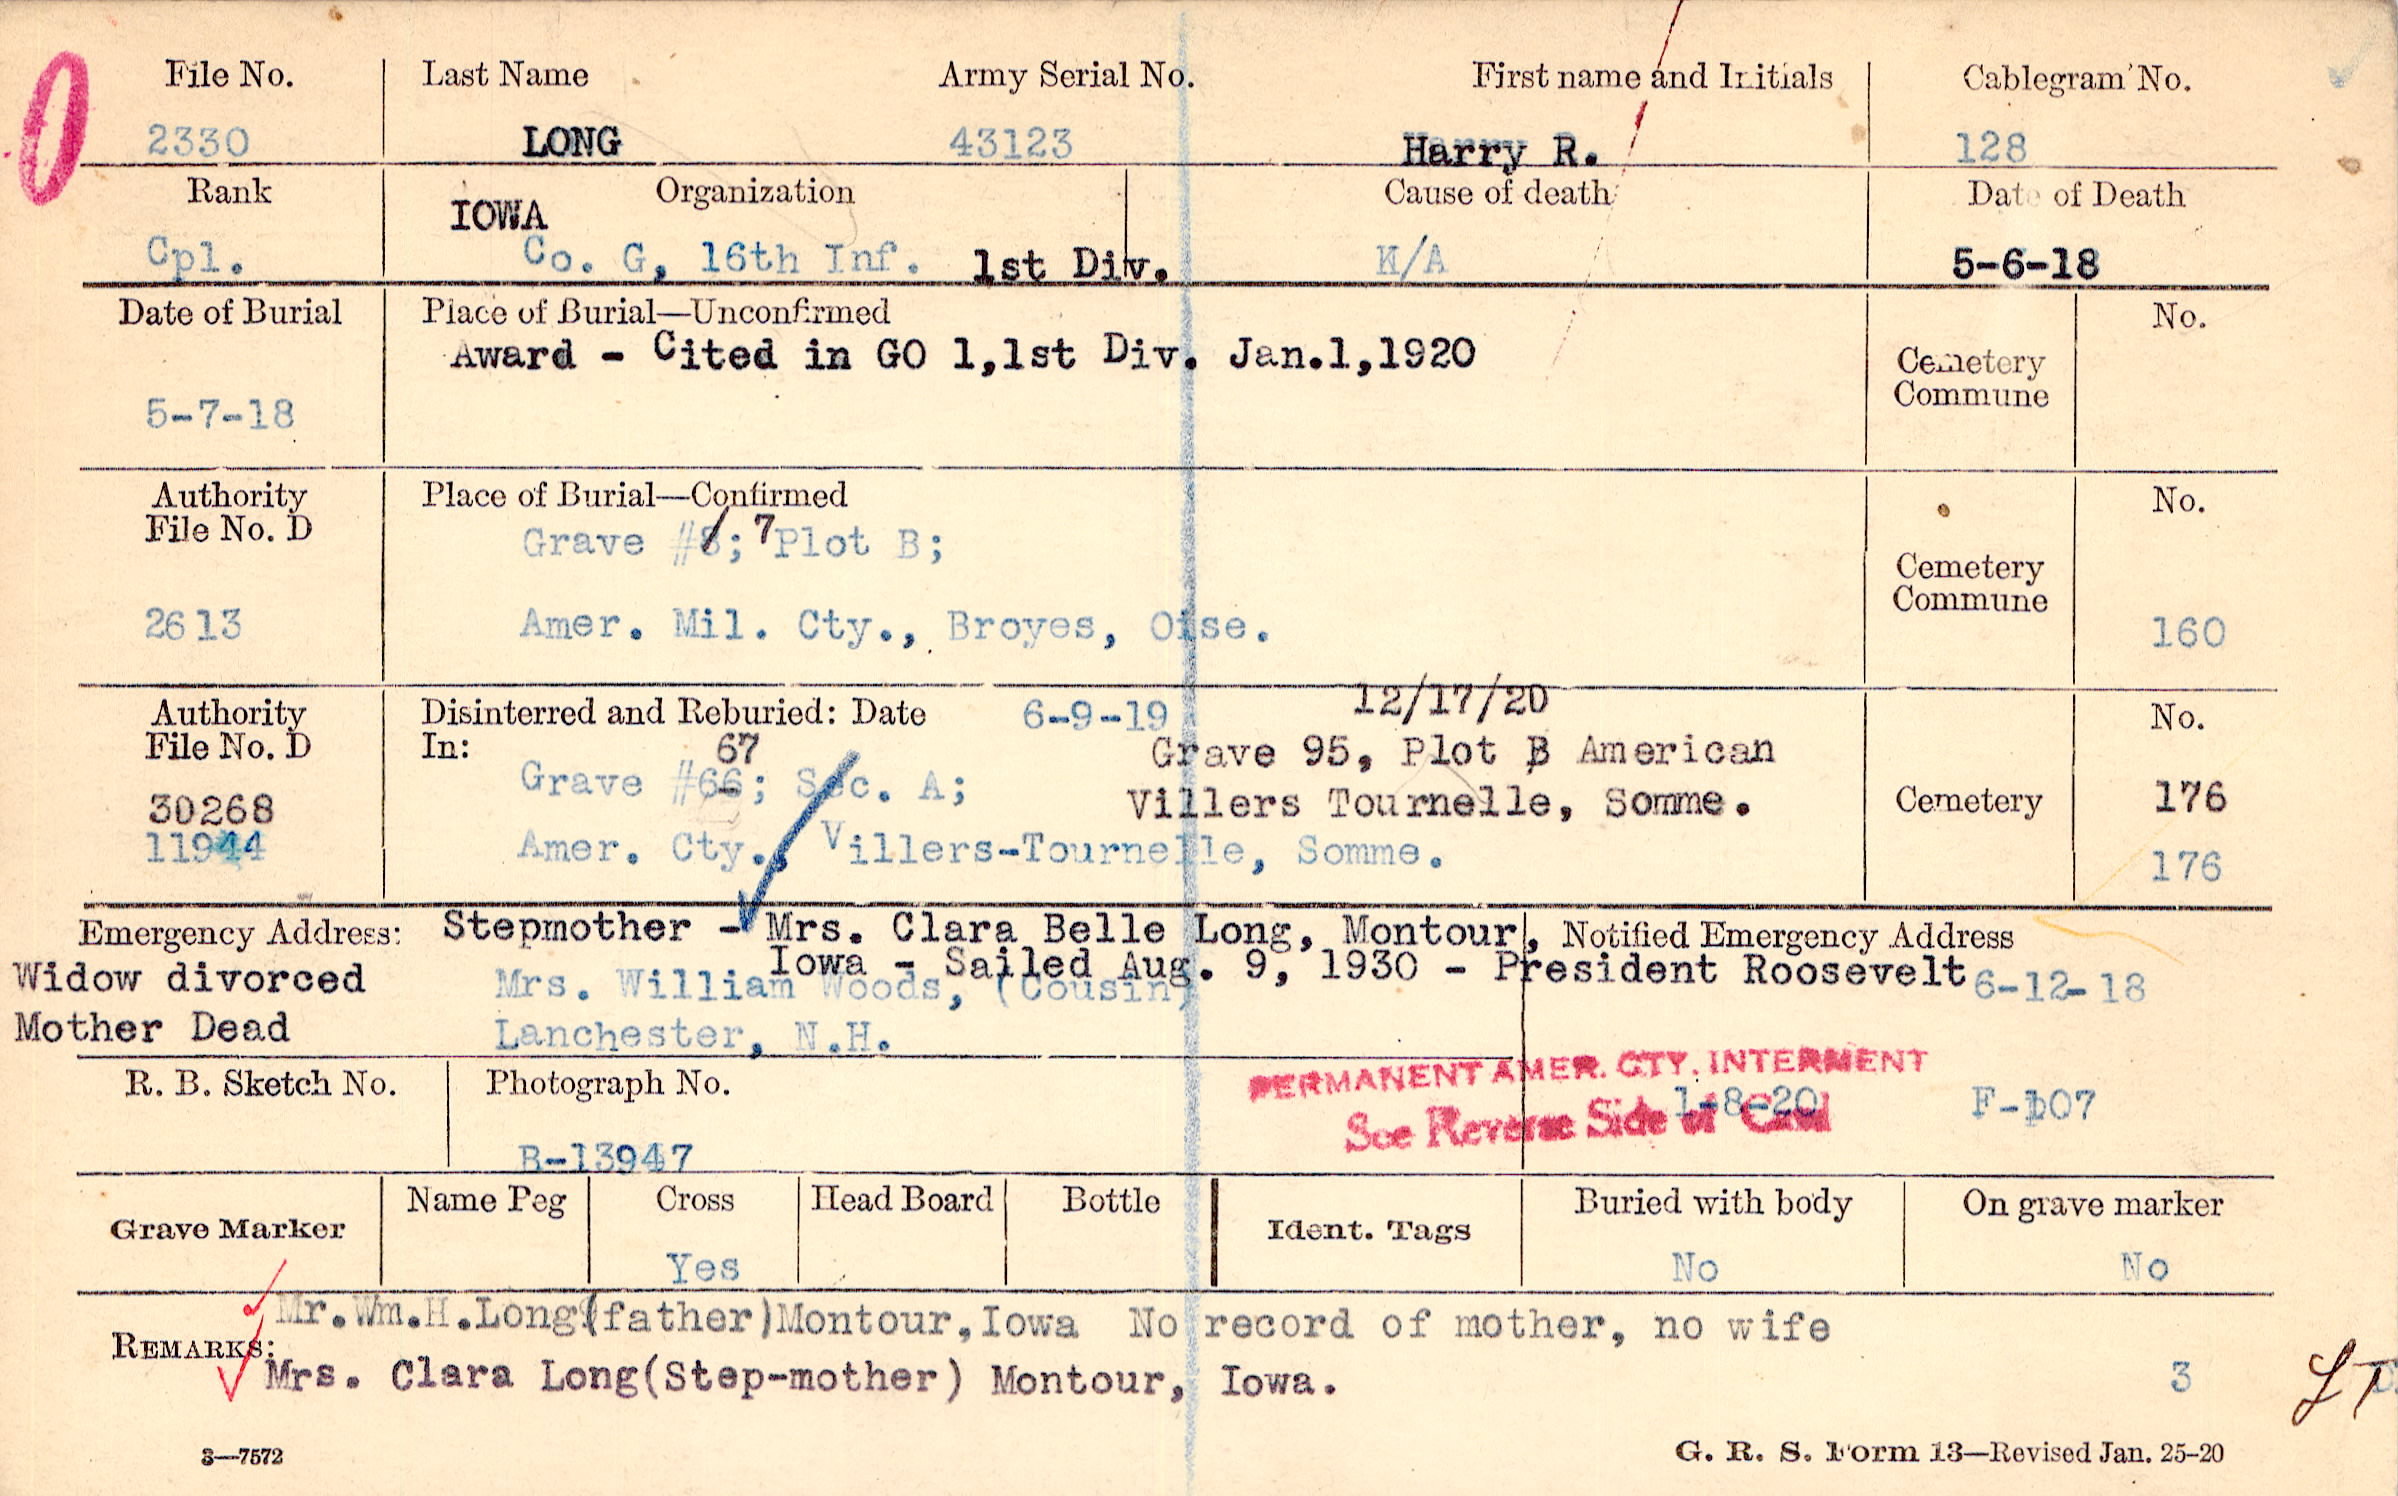 File No. Last Name Army Serial No. First name and Initials Cablegram No.
2330 LONG 43123 Harry R. 128
Rank Organization Cause of death Date of Death
IOWA
Cpl. Co. G, 16th Inf. 1st Div. K/A 5-6-18
Date of Burial Place of Burial—Unconfirmed No.
Award - Cited in GO 1,1st Div. Jan.1,1920
Cemetery
Commune
5-7-18
Authority Place of Burial—Confirmed No.
File No. D
Grave #8; 7 Plot B;
Cemetery
Commune
2613 Amer. Mil. Cty., Broyes, Oise. 160
12/17/20
Authority Disinterred and Reburied: Date 6-9-19 No.
File No. D In: 67 Grave 95, Plot B American
Grave #66; Sec. A;
30268 Villers Tournelle, Somme. Cemetery 176
11944 Amer. Cty., Villers-Tournelle, Somme. 176
Emergency Address: Stepmother - Mrs. Clara Belle Long, Montour, Notified Emergency Address
Iowa - Sailed Aug. 9, 1930 - President Roosevelt
Widow divorced Mrs. William Woods, (Cousin) 6-12-18
Mother Dead Lanchester, N.H.
R. B. Sketch No. Photograph No. PERMANENT AMER. CTY. INTERMENT
1-8-20 F-107
See Reverse Side of Card
B-13947
Grave Marker Name Peg Cross Head Board Bottle Ident. Tags Buried with body On grave marker
Yes No No
Mr.Wm.H.Long(father)Montour,Iowa No record of mother, no wife
REMARKS:
Mrs. Clara Long(Step-mother) Montour, Iowa. 3
3—7572 G. R. S. Form 13—Revised Jan. 25-20